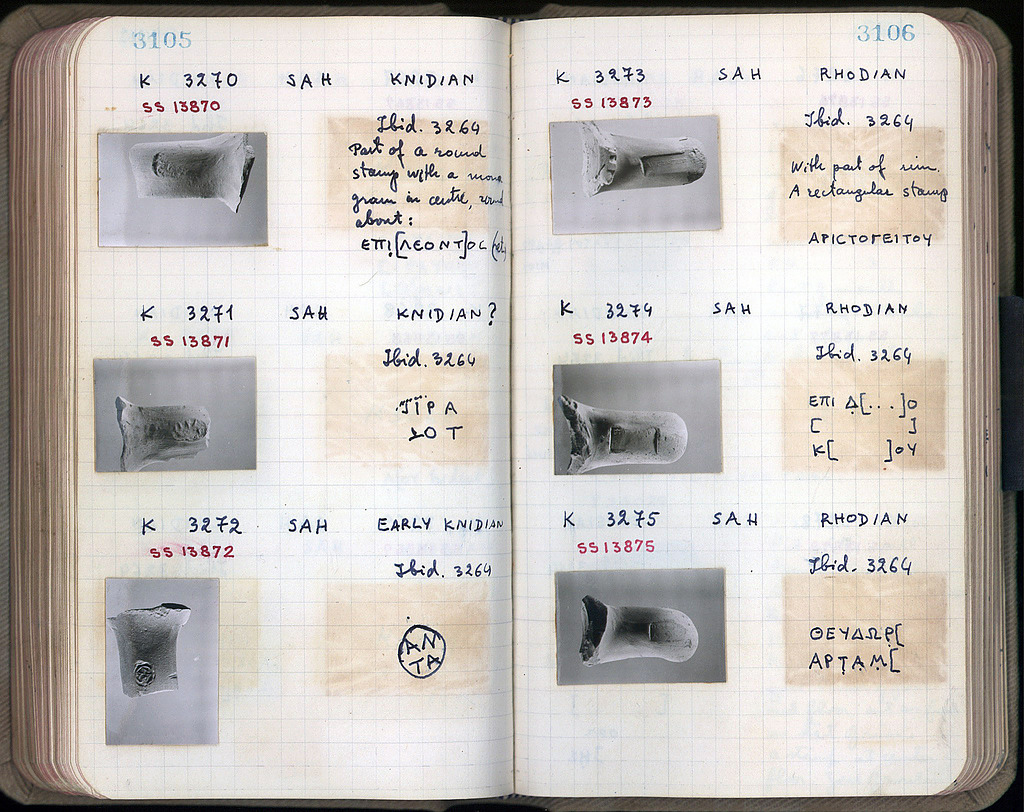 3105
K 3270 SAH KNIDIAN
SS 13870
Ibid. 3264
Part of a round
stamp with a mono
gram in centre, round
about:
ΕΠΙ[ΛΕΟΝΤ]ΟC
K 3271 SAH KNIDIAN?
SS 13871
Ibid. 3264
ΡΑ
ΔΟΤ
K 3272 SAH EARLY KNIDIAN
SS 13872
Ibid. 3264
ΑΝ
ΤΑ
3106
K 3273 SAH RHODIAN
SS 13873
Ibid. 3264
With part of rim.
A rectangular stamp
ΑΡΙCΤΟΓΕΙΤΟΥ
K 3274 SAH RHODIAN
SS 13874
Ibid. 3264
ΕΠΙ Δ̣[...]Ο
[ ]
Κ[ ]ΟΥ
K 3275 SAH RHODIAN
SS 13875
Ibid. 3264
ΘΕΥΔΩΡ̣[
ΑΡΤ̣ΑΜ̣[